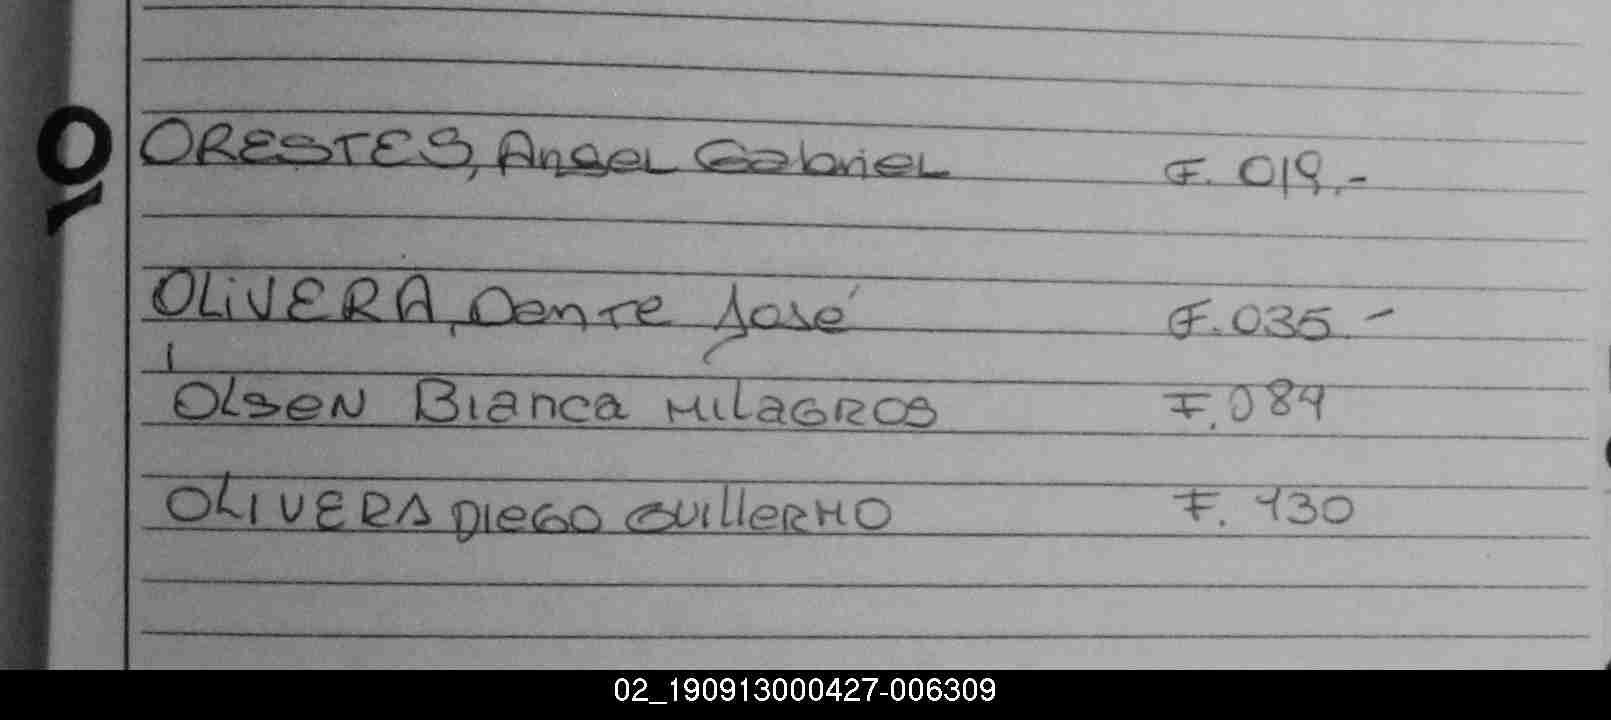 O
ORESTES, Angel Gabriel F. 019.-
OLiVERA, Dante José F. 035.-
OLSEN Bianca MILAGROS F. 084
OLIVERA DIEGO GUILLERMO F. 130
02_190913000427-006309